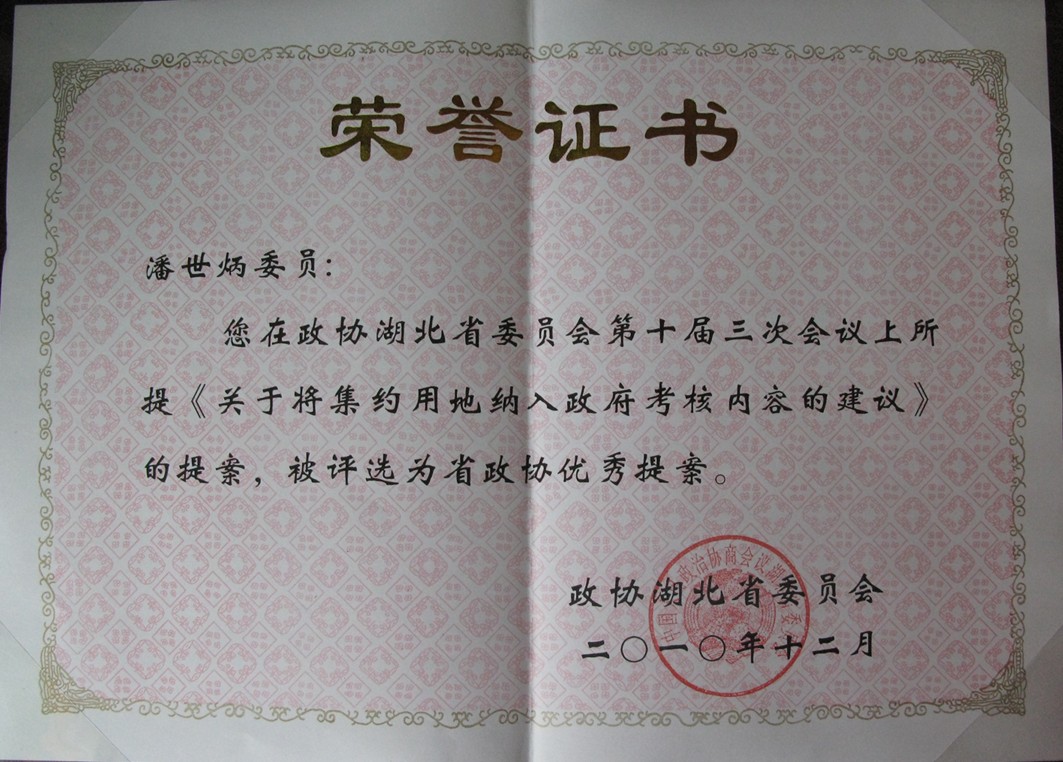 荣誉证书
潘世炳委员：
您在政协湖北省委员会第十届三次会议上所
提《关于将集约用地纳入政府考核内容的建议》
的提案，被评选为省政协优秀提案。
政协湖北省委员会
二〇一〇年十二月